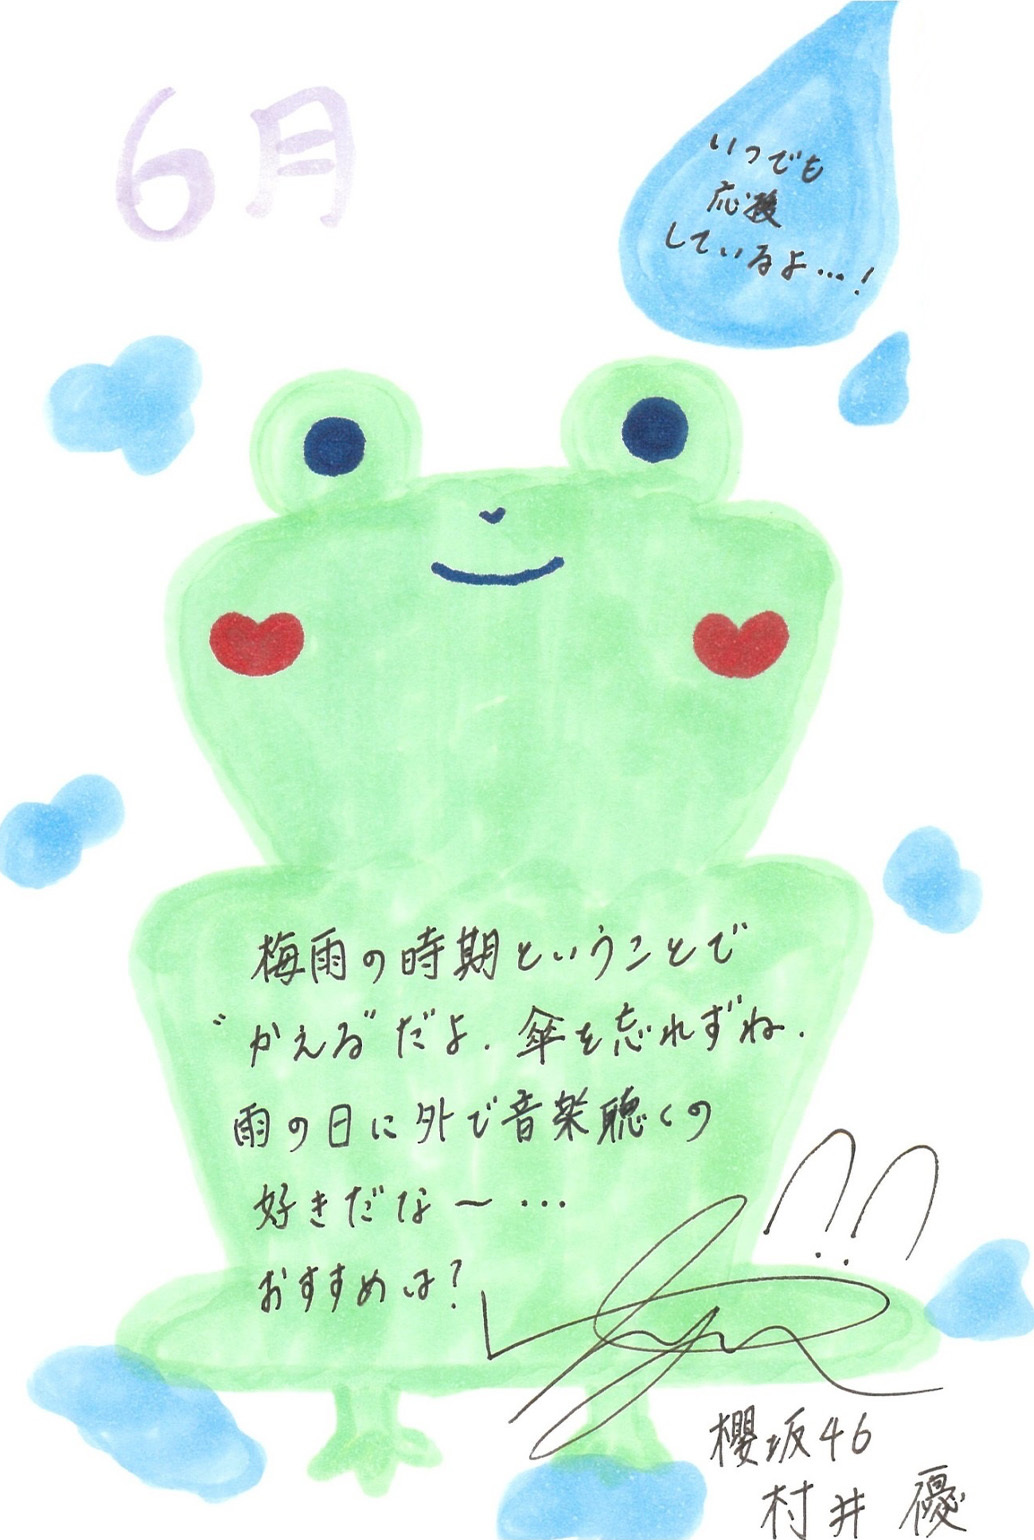 6月
いつでも
応援
しているよ…!
梅雨の時期ということで
"かえる"だよ. 傘を忘れずね.
雨の日に外で音楽聴くの
好きだな〜…
おすすめは?
櫻坂46
村井 優